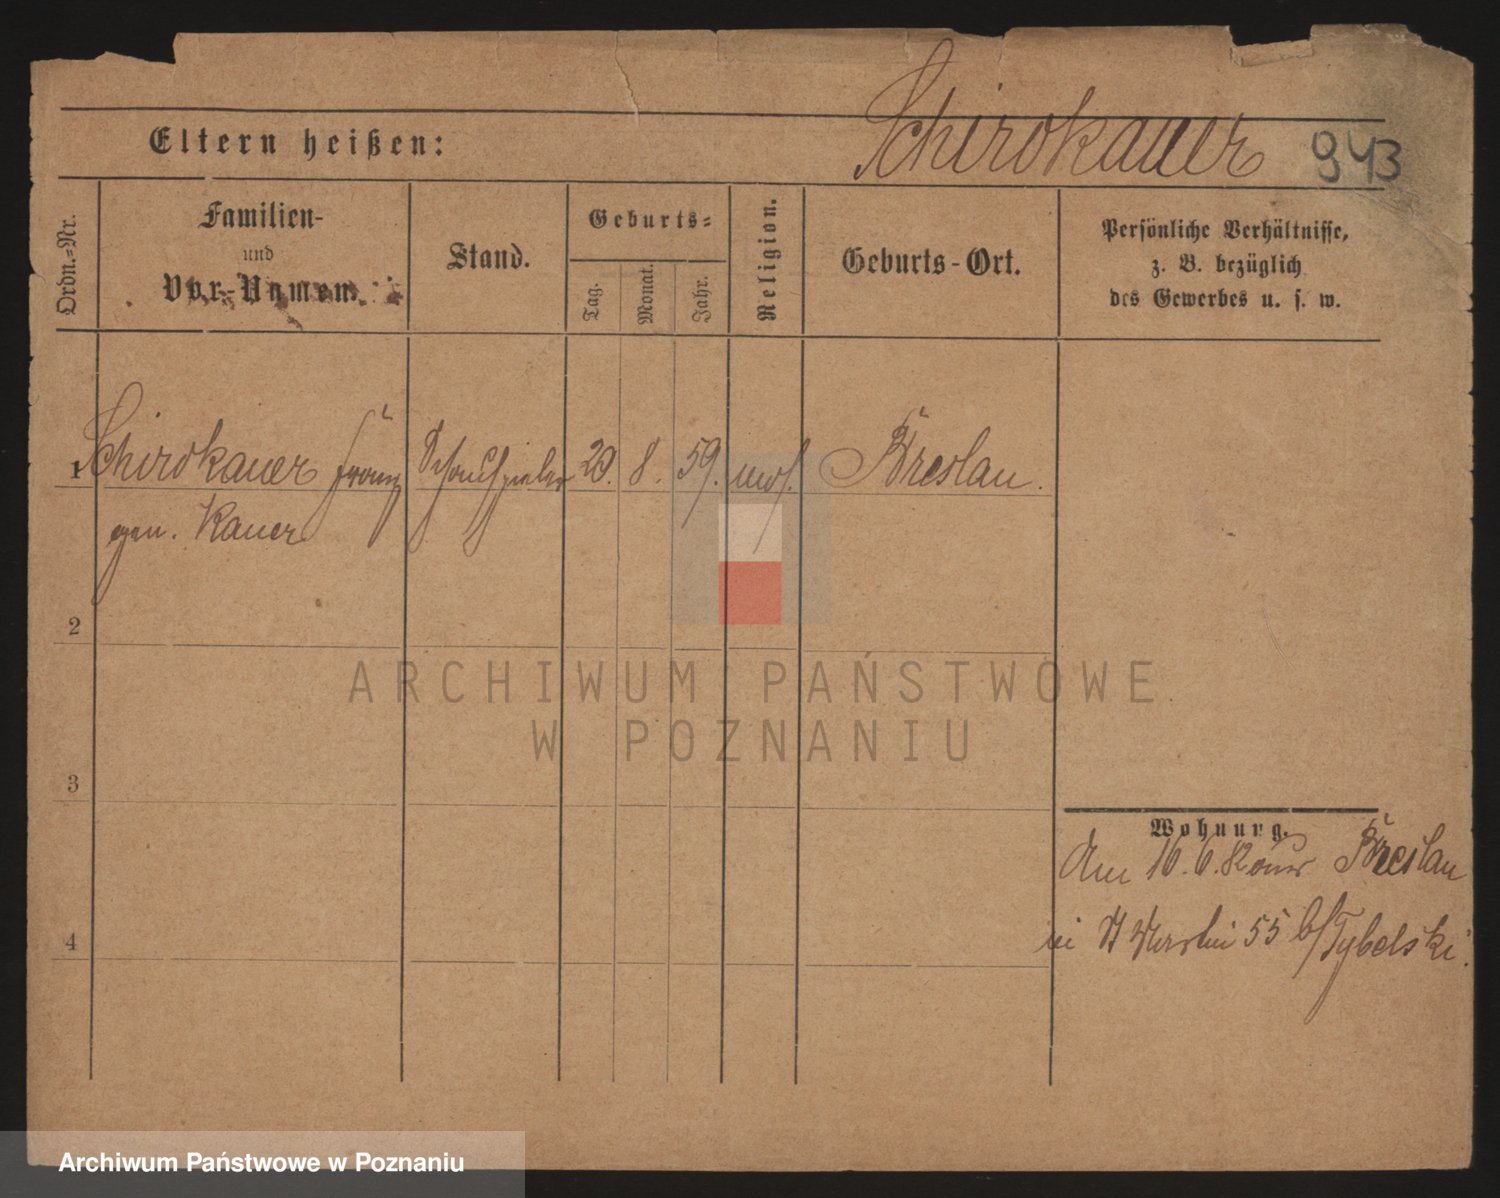 Schirokauer 943
Eltern heißen:
Ordn.-Nr.
Familien-
und
Vor-Namen.
Stand.
Geburts-
Tag.
Monat.
Jahr.
Religion.
Geburts-Ort.
Persönliche Verhältnisse,
z. B. bezüglich
des Gewerbes u. s. w.
1 Schirokauer Franz Schauspieler 20. 8. 59. mos. Breslau.
gen. Kauer
2
3
4
Wohnung.
Am 16. 6. 82 Breslau
55 b/Tybelski.
ARCHIWUM PAŃSTWOWE
W POZNANIU
Archiwum Państwowe w Poznaniu